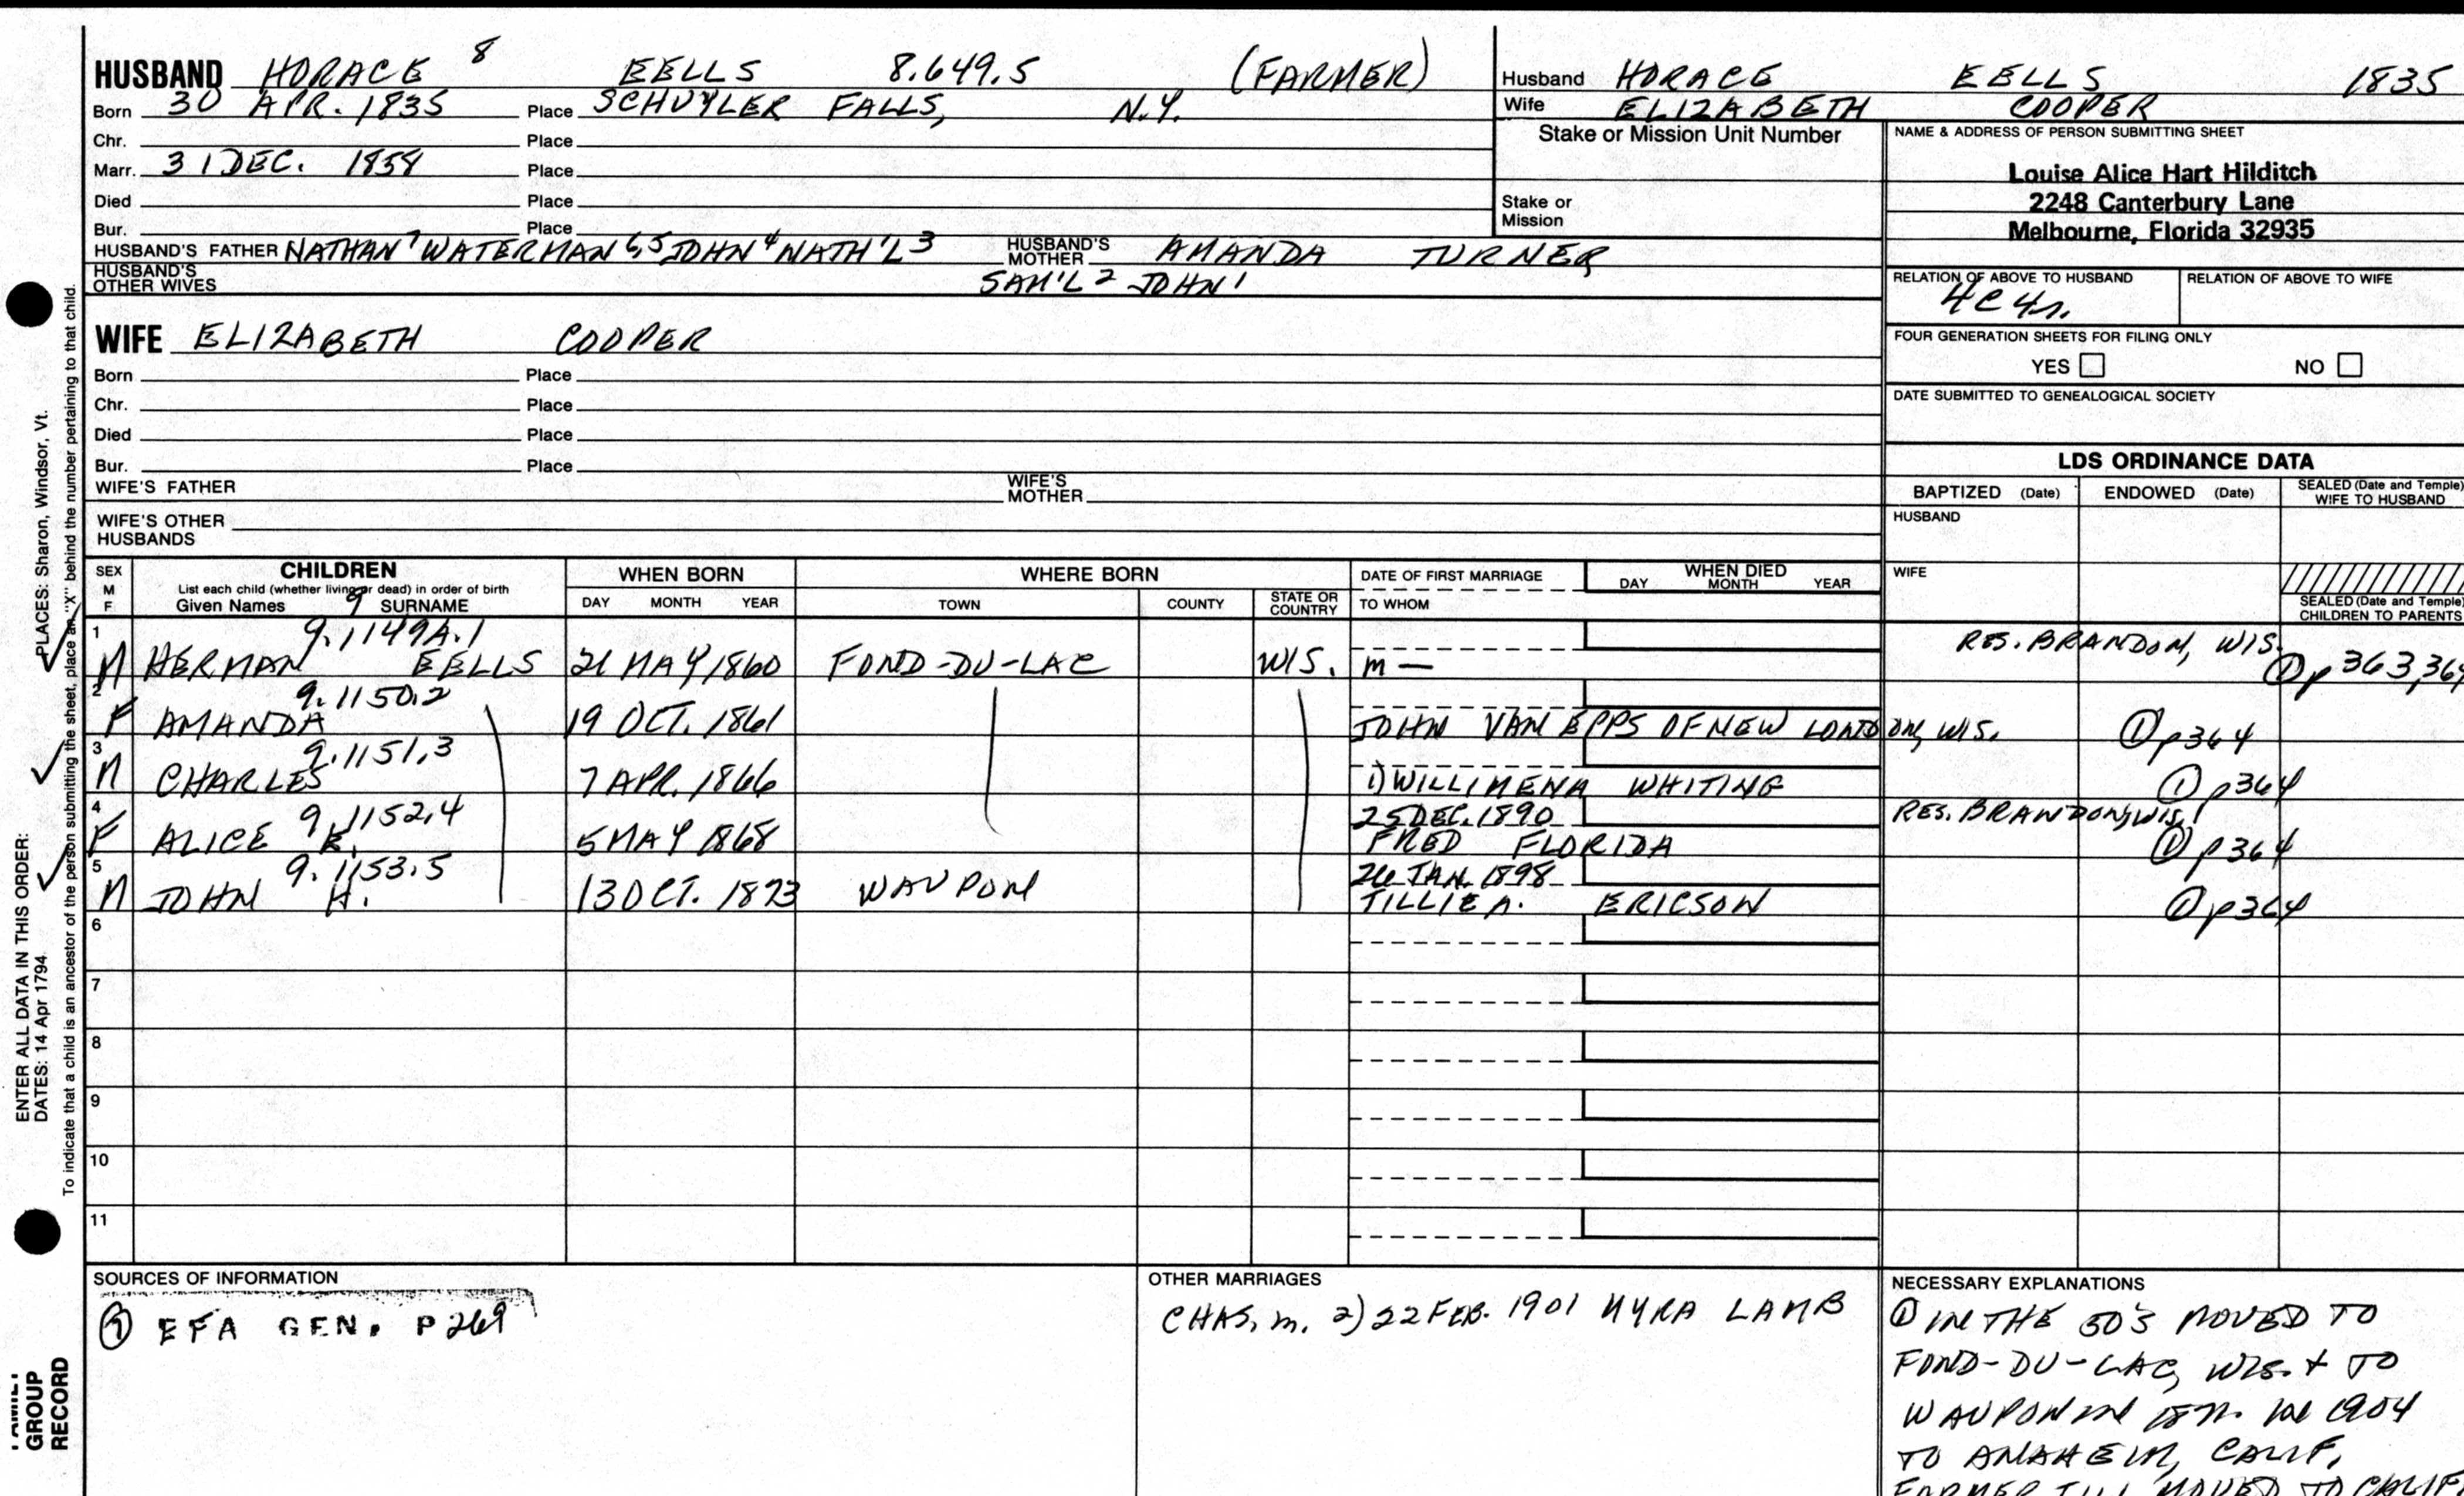 HUSBAND HORACE 8 EELLS 8.649.5 (FARMER)
Born 30 APR. 1835 Place SCHUYLER FALLS, N.Y.
Chr. Place
Marr. 31 DEC. 1858 Place
Died Place
Bur. Place
HUSBAND'S FATHER NATHAN 7 WATERMAN 6,5 JOHN 4 NATH'L 3 HUSBAND'S MOTHER AMANDA TURNER
HUSBAND'S OTHER WIVES SAM'L 2 JOHN 1
WIFE ELIZABETH COOPER
Born Place
Chr. Place
Died Place
Bur. Place
WIFE'S FATHER WIFE'S MOTHER
WIFE'S OTHER HUSBANDS
Husband HORACE EELLS 1835
Wife ELIZABETH COOPER
Stake or Mission Unit Number
Stake or Mission
NAME & ADDRESS OF PERSON SUBMITTING SHEET
Louise Alice Hart Hilditch
2248 Canterbury Lane
Melbourne, Florida 32935
RELATION OF ABOVE TO HUSBAND RELATION OF ABOVE TO WIFE
4C4r.
FOUR GENERATION SHEETS FOR FILING ONLY
YES NO
DATE SUBMITTED TO GENEALOGICAL SOCIETY
LDS ORDINANCE DATA
BAPTIZED (Date) ENDOWED (Date) SEALED (Date and Temple) WIFE TO HUSBAND
HUSBAND
WIFE
SEALED (Date and Temple) CHILDREN TO PARENTS
SEX M F CHILDREN WHEN BORN WHERE BORN DATE OF FIRST MARRIAGE WHEN DIED
List each child (whether living or dead) in order of birth
Given Names 9 SURNAME DAY MONTH YEAR TOWN COUNTY STATE OR COUNTRY TO WHOM DAY MONTH YEAR
1 9.1149A.1 RES. BRANDON, WIS.
M HERMAN EELLS 21 MAY 1860 FOND-DU-LAC WIS. m — ① p 363,364
2 9.1150.2
F AMANDA 19 OCT. 1861 JOHN VAN EPPS OF NEW LONDON, WIS. ① p364
3 9.1151.3
M CHARLES 7 APR. 1866 1) WILLIMENA WHITING ① p364
4 9.1152.4 25 DEC. 1890 RES. BRANDON, WIS.
F ALICE E. 5 MAY 1868 FRED FLORIDA ① p364
5 9.1153.5 26 JAN. 1898
M JOHN H. 13 OCT. 1873 WAUPON TILLIE A. ERICSON ① p364
6
7
8
9
10
11
SOURCES OF INFORMATION
① EFA GEN. P 269
OTHER MARRIAGES
CHAS. m. 2) 22 FEB. 1901 MYRA LAMB
NECESSARY EXPLANATIONS
① IN THE 50'S MOVED TO
FOND-DU-LAC, WIS. + TO
WAUPON in 1904
TO ANAHEIM, CALIF.
FARMER TILL MOVED TO CALIF
ENTER ALL DATA IN THIS ORDER:
DATES: 14 Apr 1794.
PLACES: Sharon, Windsor, Vt.
To indicate that a child is an ancestor of the person submitting the sheet, place an "X" behind the number pertaining to that child.
FAMILY
GROUP
RECORD